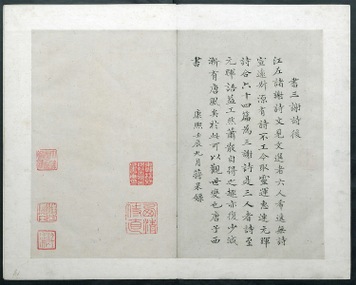 書三謝詩後
江左諸謝詩文見文選者六人希逸無詩
宣遠叔源有詩不工今取靈運惠連元暉
詩合六十四篇為三謝詩是三人者詩至
元暉語益工然蕭散自得之趣亦復少減
漸有唐風矣於此可以觀世變也唐子西
書
康熙壬辰九月蔣杲錄